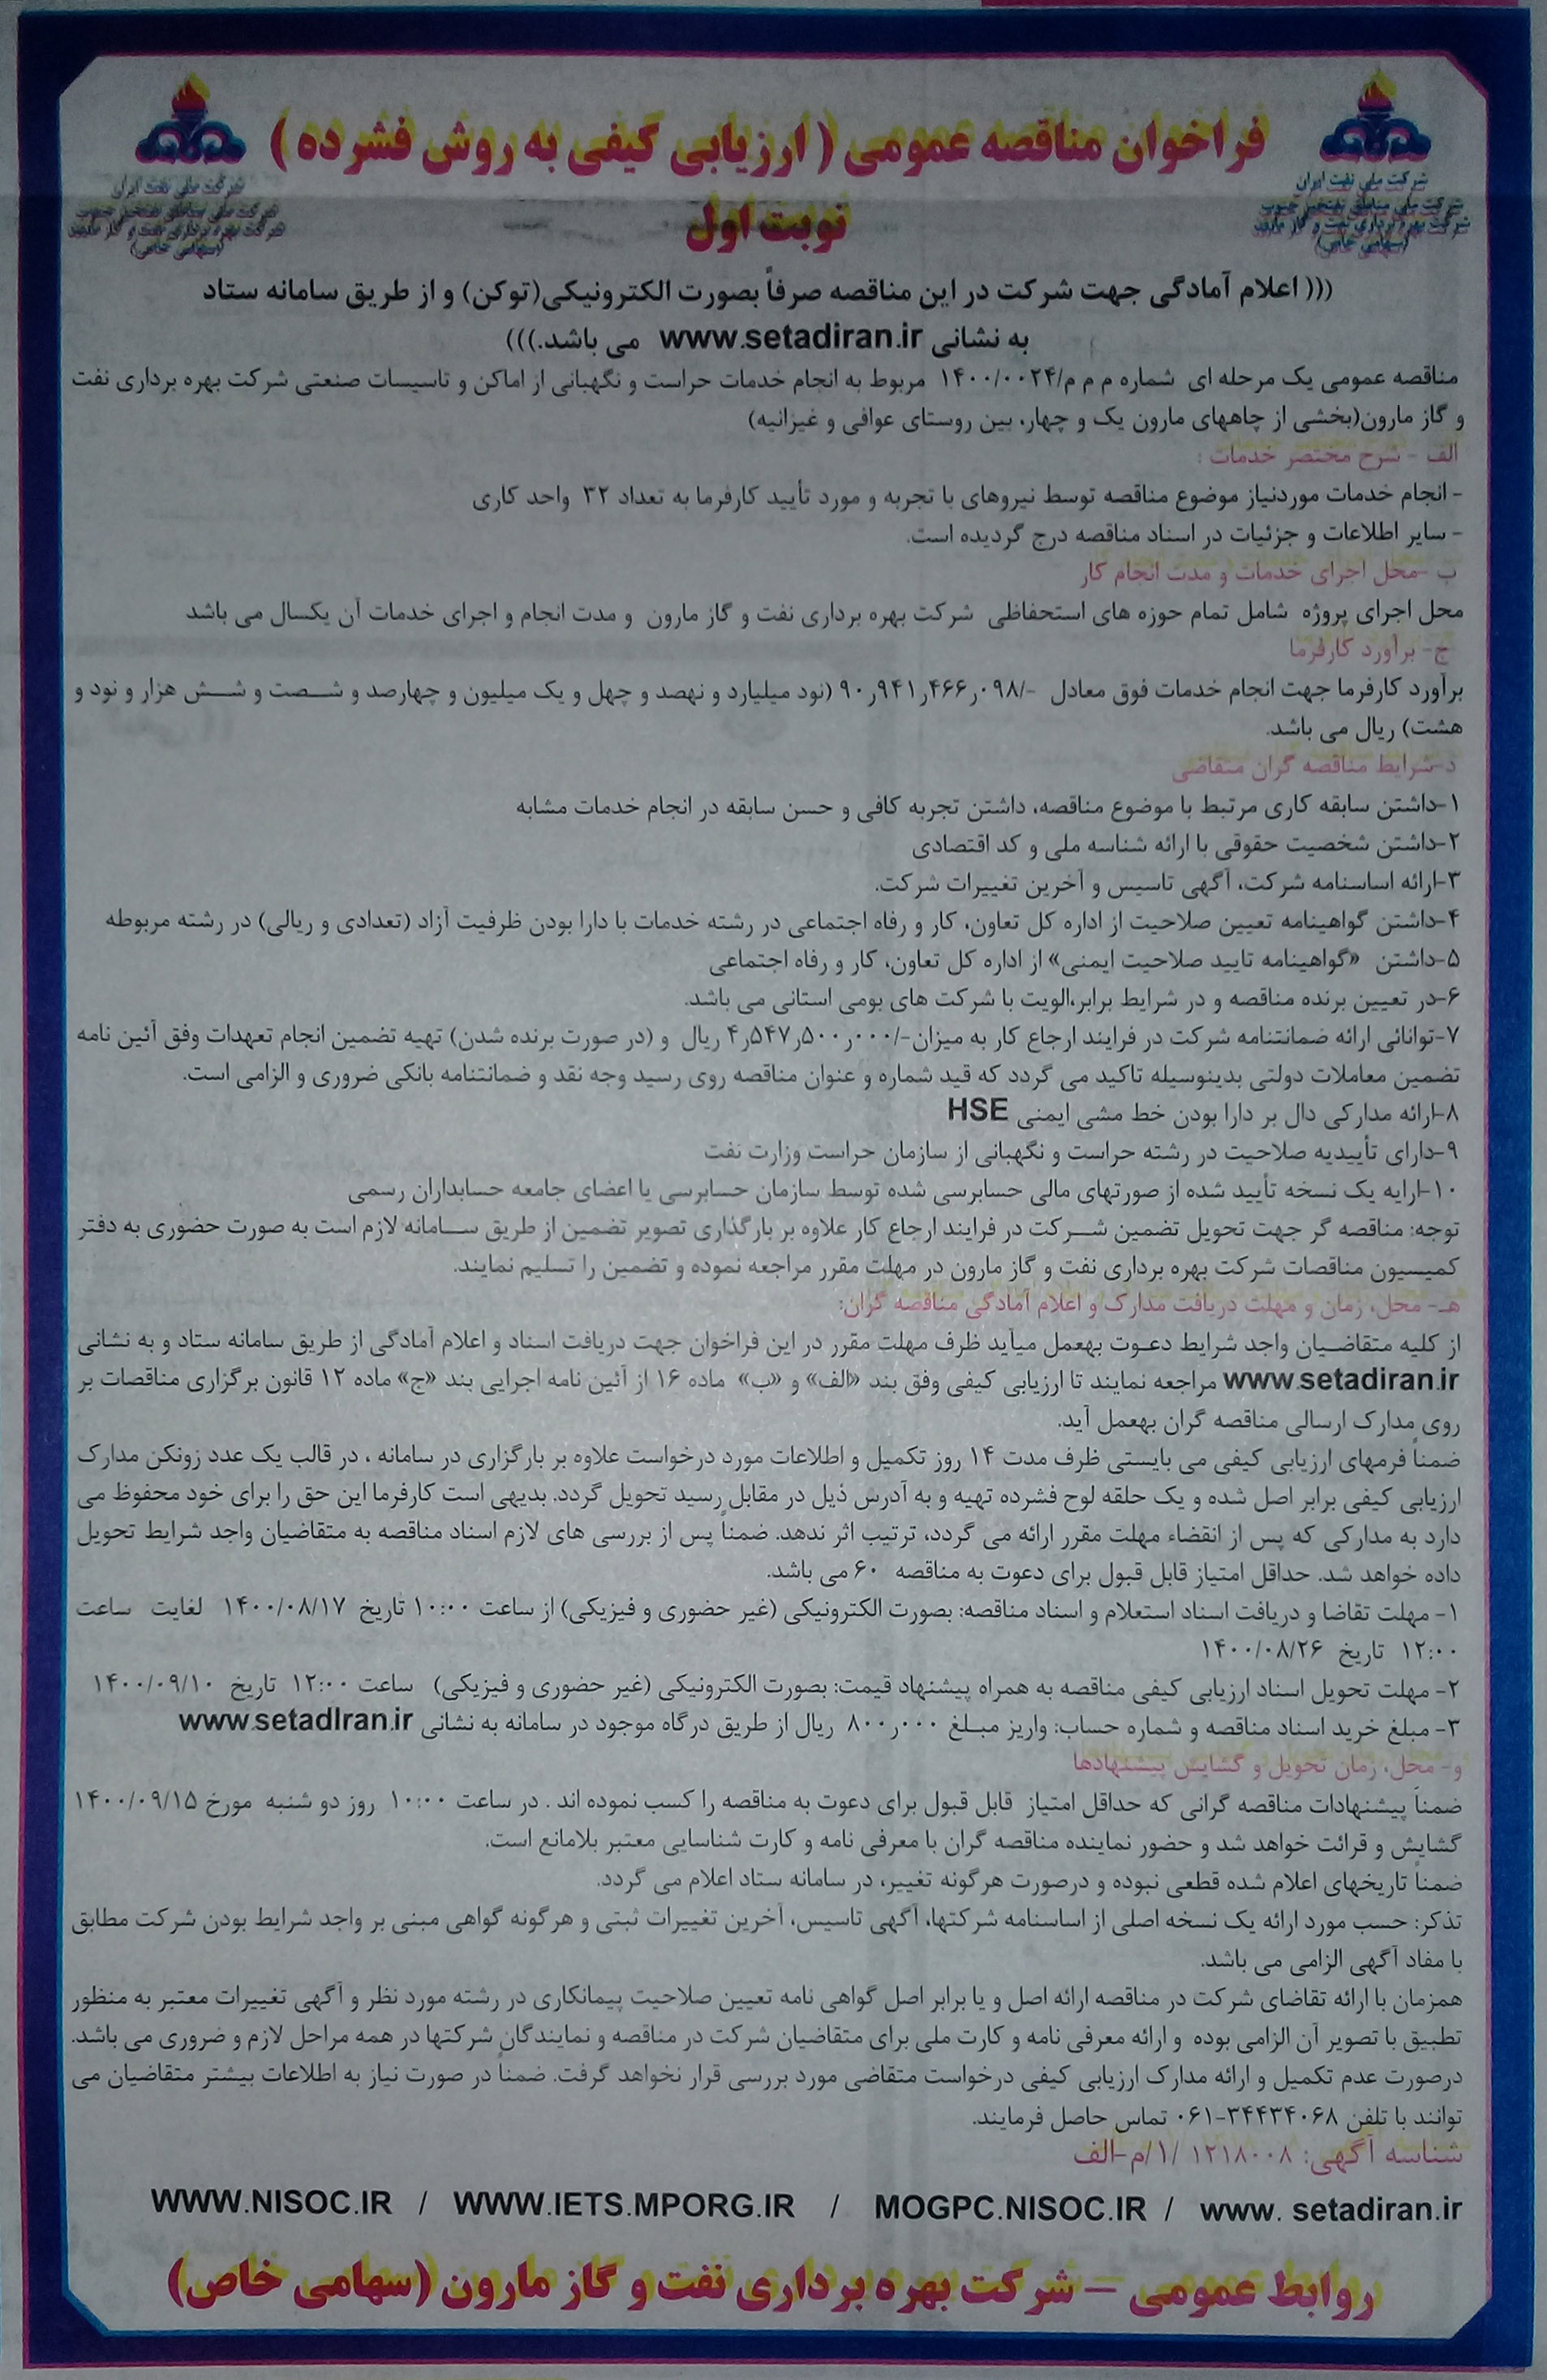 فراخوان مناقصه عمومی ( ارزیابی کیفی به روش فشرده )
نوبت اول
شرکت ملی نفت ایران
شرکت ملی مناطق نفتخیز جنوب
شرکت بهره برداری نفت و گاز مارون
(سهامی خاص)
شرکت ملی نفت ایران
شرکت ملی مناطق نفتخیز جنوب
شرکت بهره برداری نفت و گاز مارون
(سهامی خاص)
((( اعلام آمادگی جهت شرکت در این مناقصه صرفاً بصورت الکترونیکی(توکن) و از طریق سامانه ستاد
به نشانی www.setadiran.ir می باشد.)))
مناقصه عمومی یک مرحله ای شماره م م م/۱۴۰۰/۰۰۲۴ مربوط به انجام خدمات حراست و نگهبانی از اماکن و تاسیسات صنعتی شرکت بهره برداری نفت
و گاز مارون(بخشی از چاههای مارون یک و چهار، بین روستای عوافی و غیزانیه)
الف - شرح مختصر خدمات :
- انجام خدمات موردنیاز موضوع مناقصه توسط نیروهای با تجربه و مورد تأیید کارفرما به تعداد ۳۲ واحد کاری
- سایر اطلاعات و جزئیات در اسناد مناقصه درج گردیده است.
ب -محل اجرای خدمات و مدت انجام کار
محل اجرای پروژه شامل تمام حوزه های استحفاظی شرکت بهره برداری نفت و گاز مارون و مدت انجام و اجرای خدمات آن یکسال می باشد
ج- برآورد کارفرما
برآورد کارفرما جهت انجام خدمات فوق معادل -/۹۰٫۹۴۱٫۴۶۶٫۰۹۸ (نود میلیارد و نهصد و چهل و یک میلیون و چهارصد و شصت و شش هزار و نود و
هشت) ریال می باشد.
د-شرایط مناقصه گران متقاضی
۱-داشتن سابقه کاری مرتبط با موضوع مناقصه، داشتن تجربه کافی و حسن سابقه در انجام خدمات مشابه
۲-داشتن شخصیت حقوقی با ارائه شناسه ملی و کد اقتصادی
۳-ارائه اساسنامه شرکت، آگهی تاسیس و آخرین تغییرات شرکت.
۴-داشتن گواهینامه تعیین صلاحیت از اداره کل تعاون، کار و رفاه اجتماعی در رشته خدمات با دارا بودن ظرفیت آزاد (تعدادی و ریالی) در رشته مربوطه
۵-داشتن «گواهینامه تایید صلاحیت ایمنی» از اداره کل تعاون، کار و رفاه اجتماعی
۶-در تعیین برنده مناقصه و در شرایط برابر،الویت با شرکت های بومی استانی می باشد.
۷-توانائی ارائه ضمانتنامه شرکت در فرایند ارجاع کار به میزان-/۴٫۵۴۷٫۵۰۰٫۰۰۰ ریال و (در صورت برنده شدن) تهیه تضمین انجام تعهدات وفق آئین نامه
تضمین معاملات دولتی بدینوسیله تاکید می گردد که قید شماره و عنوان مناقصه روی رسید وجه نقد و ضمانتنامه بانکی ضروری و الزامی است.
۸-ارائه مدارکی دال بر دارا بودن خط مشی ایمنی HSE
۹-دارای تأییدیه صلاحیت در رشته حراست و نگهبانی از سازمان حراست وزارت نفت
۱۰-ارایه یک نسخه تأیید شده از صورتهای مالی حسابرسی شده توسط سازمان حسابرسی یا اعضای جامعه حسابداران رسمی
توجه: مناقصه گر جهت تحویل تضمین شرکت در فرایند ارجاع کار علاوه بر بارگذاری تصویر تضمین از طریق سامانه لازم است به صورت حضوری به دفتر
کمیسیون مناقصات شرکت بهره برداری نفت و گاز مارون در مهلت مقرر مراجعه نموده و تضمین را تسلیم نمایند.
هـ- محل، زمان و مهلت دریافت مدارک و اعلام آمادگی مناقصه گران:
از کلیه متقاضیان واجد شرایط دعوت بهعمل میآید ظرف مهلت مقرر در این فراخوان جهت دریافت اسناد و اعلام آمادگی از طریق سامانه ستاد و به نشانی
www.setadiran.ir مراجعه نمایند تا ارزیابی کیفی وفق بند «الف» و «ب» ماده ۱۶ از آئین نامه اجرایی بند «ج» ماده ۱۲ قانون برگزاری مناقصات بر
روی مدارک ارسالی مناقصه گران بهعمل آید.
ضمناً فرمهای ارزیابی کیفی می بایستی ظرف مدت ۱۴ روز تکمیل و اطلاعات مورد درخواست علاوه بر بارگزاری در سامانه ، در قالب یک عدد زونکن مدارک
ارزیابی کیفی برابر اصل شده و یک حلقه لوح فشرده تهیه و به آدرس ذیل در مقابل رسید تحویل گردد. بدیهی است کارفرما این حق را برای خود محفوظ می
دارد به مدارکی که پس از انقضاء مهلت مقرر ارائه می گردد، ترتیب اثر ندهد. ضمناً پس از بررسی های لازم اسناد مناقصه به متقاضیان واجد شرایط تحویل
داده خواهد شد. حداقل امتیاز قابل قبول برای دعوت به مناقصه ۶۰ می باشد.
۱- مهلت تقاضا و دریافت اسناد استعلام و اسناد مناقصه: بصورت الکترونیکی (غیر حضوری و فیزیکی) از ساعت ۱۰:۰۰ تاریخ ۱۴۰۰/۰۸/۱۷ لغایت ساعت
۱۲:۰۰ تاریخ ۱۴۰۰/۰۸/۲۶
۲- مهلت تحویل اسناد ارزیابی کیفی مناقصه به همراه پیشنهاد قیمت: بصورت الکترونیکی (غیر حضوری و فیزیکی) ساعت ۱۲:۰۰ تاریخ ۱۴۰۰/۰۹/۱۰
۳- مبلغ خرید اسناد مناقصه و شماره حساب: واریز مبلغ ۸۰۰٫۰۰۰ ریال از طریق درگاه موجود در سامانه به نشانی www.setadIran.ir
و- محل، زمان تحویل و گشایش پیشنهادها
ضمناً پیشنهادات مناقصه گرانی که حداقل امتیاز قابل قبول برای دعوت به مناقصه را کسب نموده اند . در ساعت ۱۰:۰۰ روز دو شنبه مورخ ۱۴۰۰/۰۹/۱۵
گشایش و قرائت خواهد شد و حضور نماینده مناقصه گران با معرفی نامه و کارت شناسایی معتبر بلامانع است.
ضمناً تاریخهای اعلام شده قطعی نبوده و درصورت هرگونه تغییر، در سامانه ستاد اعلام می گردد.
تذکر: حسب مورد ارائه یک نسخه اصلی از اساسنامه شرکتها، آگهی تاسیس، آخرین تغییرات ثبتی و هرگونه گواهی مبنی بر واجد شرایط بودن شرکت مطابق
با مفاد آگهی الزامی می باشد.
همزمان با ارائه تقاضای شرکت در مناقصه ارائه اصل و یا برابر اصل گواهی نامه تعیین صلاحیت پیمانکاری در رشته مورد نظر و آگهی تغییرات معتبر به منظور
تطبیق با تصویر آن الزامی بوده و ارائه معرفی نامه و کارت ملی برای متقاضیان شرکت در مناقصه و نمایندگان شرکتها در همه مراحل لازم و ضروری می باشد.
درصورت عدم تکمیل و ارائه مدارک ارزیابی کیفی درخواست متقاضی مورد بررسی قرار نخواهد گرفت. ضمناً در صورت نیاز به اطلاعات بیشتر متقاضیان می
توانند با تلفن ۳۴۴۳۴۰۶۸-۰۶۱ تماس حاصل فرمایند.
شناسه آگهی: ۱۲۱۸۰۰۸ /۱/م-الف
WWW.NISOC.IR / WWW.IETS.MPORG.IR / MOGPC.NISOC.IR / www. setadiran.ir
روابط عمومی – شرکت بهره برداری نفت و گاز مارون (سهامی خاص)